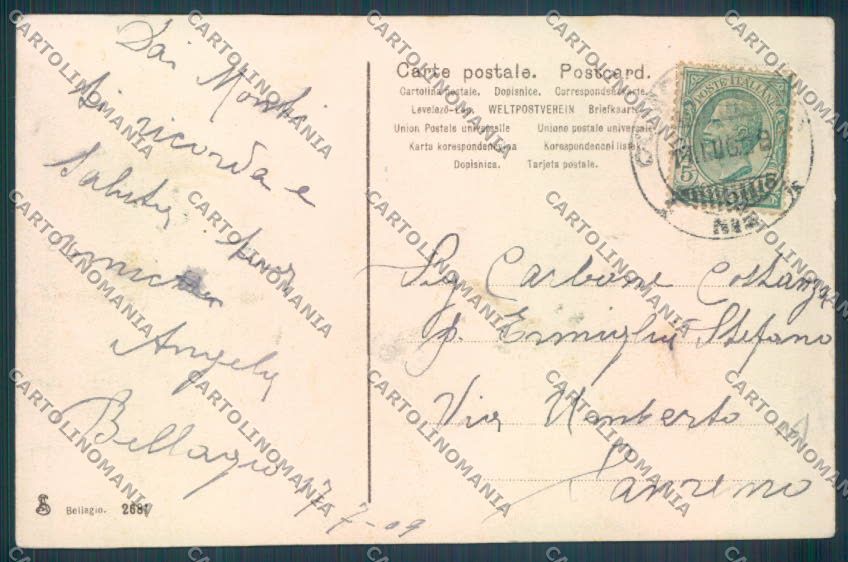 Dai Monti
Si ricorda e
Saluta
Angela
Bellagio 17
7-09
Bellagio. 2681
Carte postale. Postcard.
Cartolina postale. Dopisnice. Correspondenzkarte.
Levelező-Lap. WELTPOSTVEREIN Briefkaart
Union Postale universelle Unione postale universale
Karta korespondencyjna Korespondencni listek.
Dopisnica. Tarjeta postale.
POSTE ITALIANE
5
LUG
Sig Carbone Costanza
p. Ermiglia Stefano
Via Umberto
Sanremo
CARTOLINOMANIA